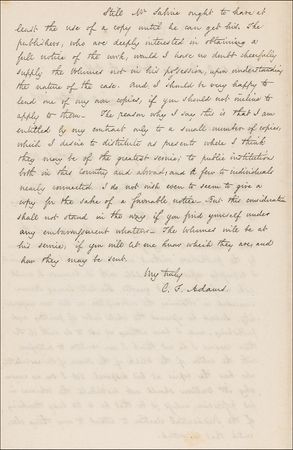 Still Mr Sabine ought to have at
least the use of a copy until he can get his. The
publishers, who are deeply interested in obtaining a
full notice of the work, would I have no doubt cheerfully
supply the volumes not in his possession, upon understanding
the nature of the case. And I should be very happy to
lend one of my own copies, if you should not incline to
apply to them — The reason why I say this is that I am
entitled by my contract only to a small number of copies,
which I desire to distribute as presents where I think
they may be of the greatest service; to public institutions
both in this country and abroad, and a few to individuals
nearly connected. I do not wish even to seem to give a
copy for the sake of a favorable notice — But this consideration
shall not stand in the way if you find yourself under
any embarrassment whatever — The volumes will be at
his service, if you will let me know which they are, and
how they may be sent.
Very truly
C. F. Adams.